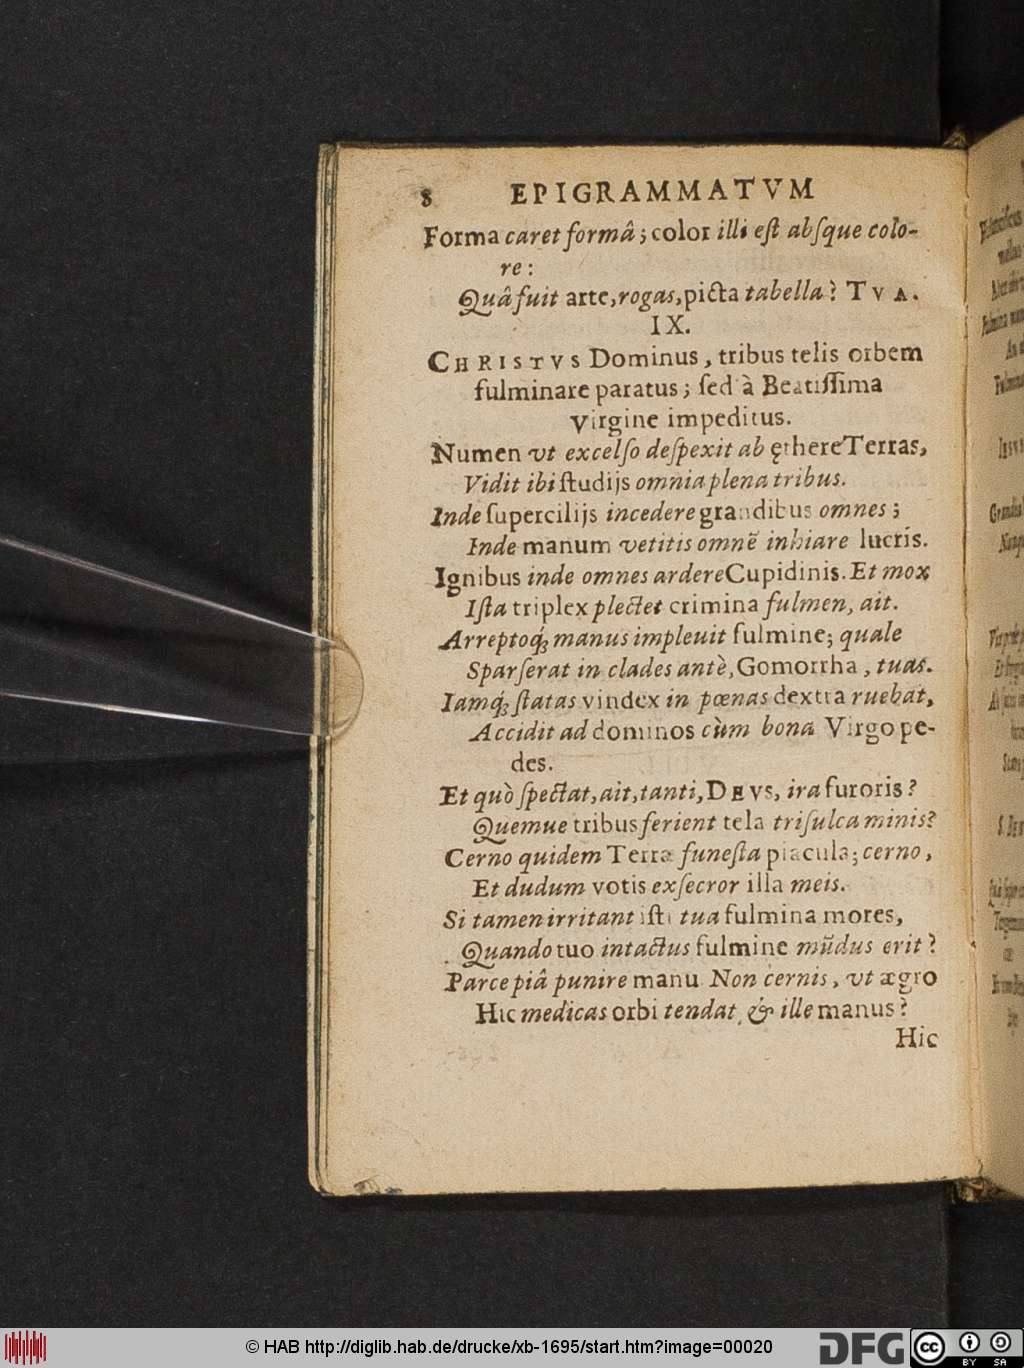 8 EPIGRAMMATVM
Forma caret formâ; color illi eſt abſque colo-
re:
Quâ fuit arte, rogas, picta tabella? TVA.
IX.
CHRISTVS Dominus, tribus telis orbem
fulminare paratus; ſed à Beatiſſima
Virgine impeditus.
Numen vt excelſo deſpexit ab ęthere Terras,
Vidit ibi ſtudijs omnia plena tribus.
Inde ſupercilijs incedere grandibus omnes;
Inde manum vetitis omnē inhiare lucris.
Ignibus inde omnes ardere Cupidinis. Et mox
Iſta triplex plectet crimina fulmen, ait.
Arreptoq́; manus impleuit fulmine; quale
Sparſerat in clades antè, Gomorrha, tuas.
Iamq́; ſtatas vindex in pœnas dextra ruebat,
Accidit ad dominos cùm bona Virgo pe-
des.
Et quò ſpectat, ait, tanti, DEVS, ira furoris?
Quemue tribus ferient tela triſulca minis?
Cerno quidem Terræ funeſta piacula; cerno,
Et dudum votis exſecror illa meis.
Si tamen irritant iſti tua fulmina mores,
Quando tuo intactus fulmine mūdus erit?
Parce piâ punire manu. Non cernis, vt ægro
Hic medicas orbi tendat, & ille manus?
Hic
© HAB http://diglib.hab.de/drucke/xb-1695/start.htm?image=00020
DFG
cc BY SA